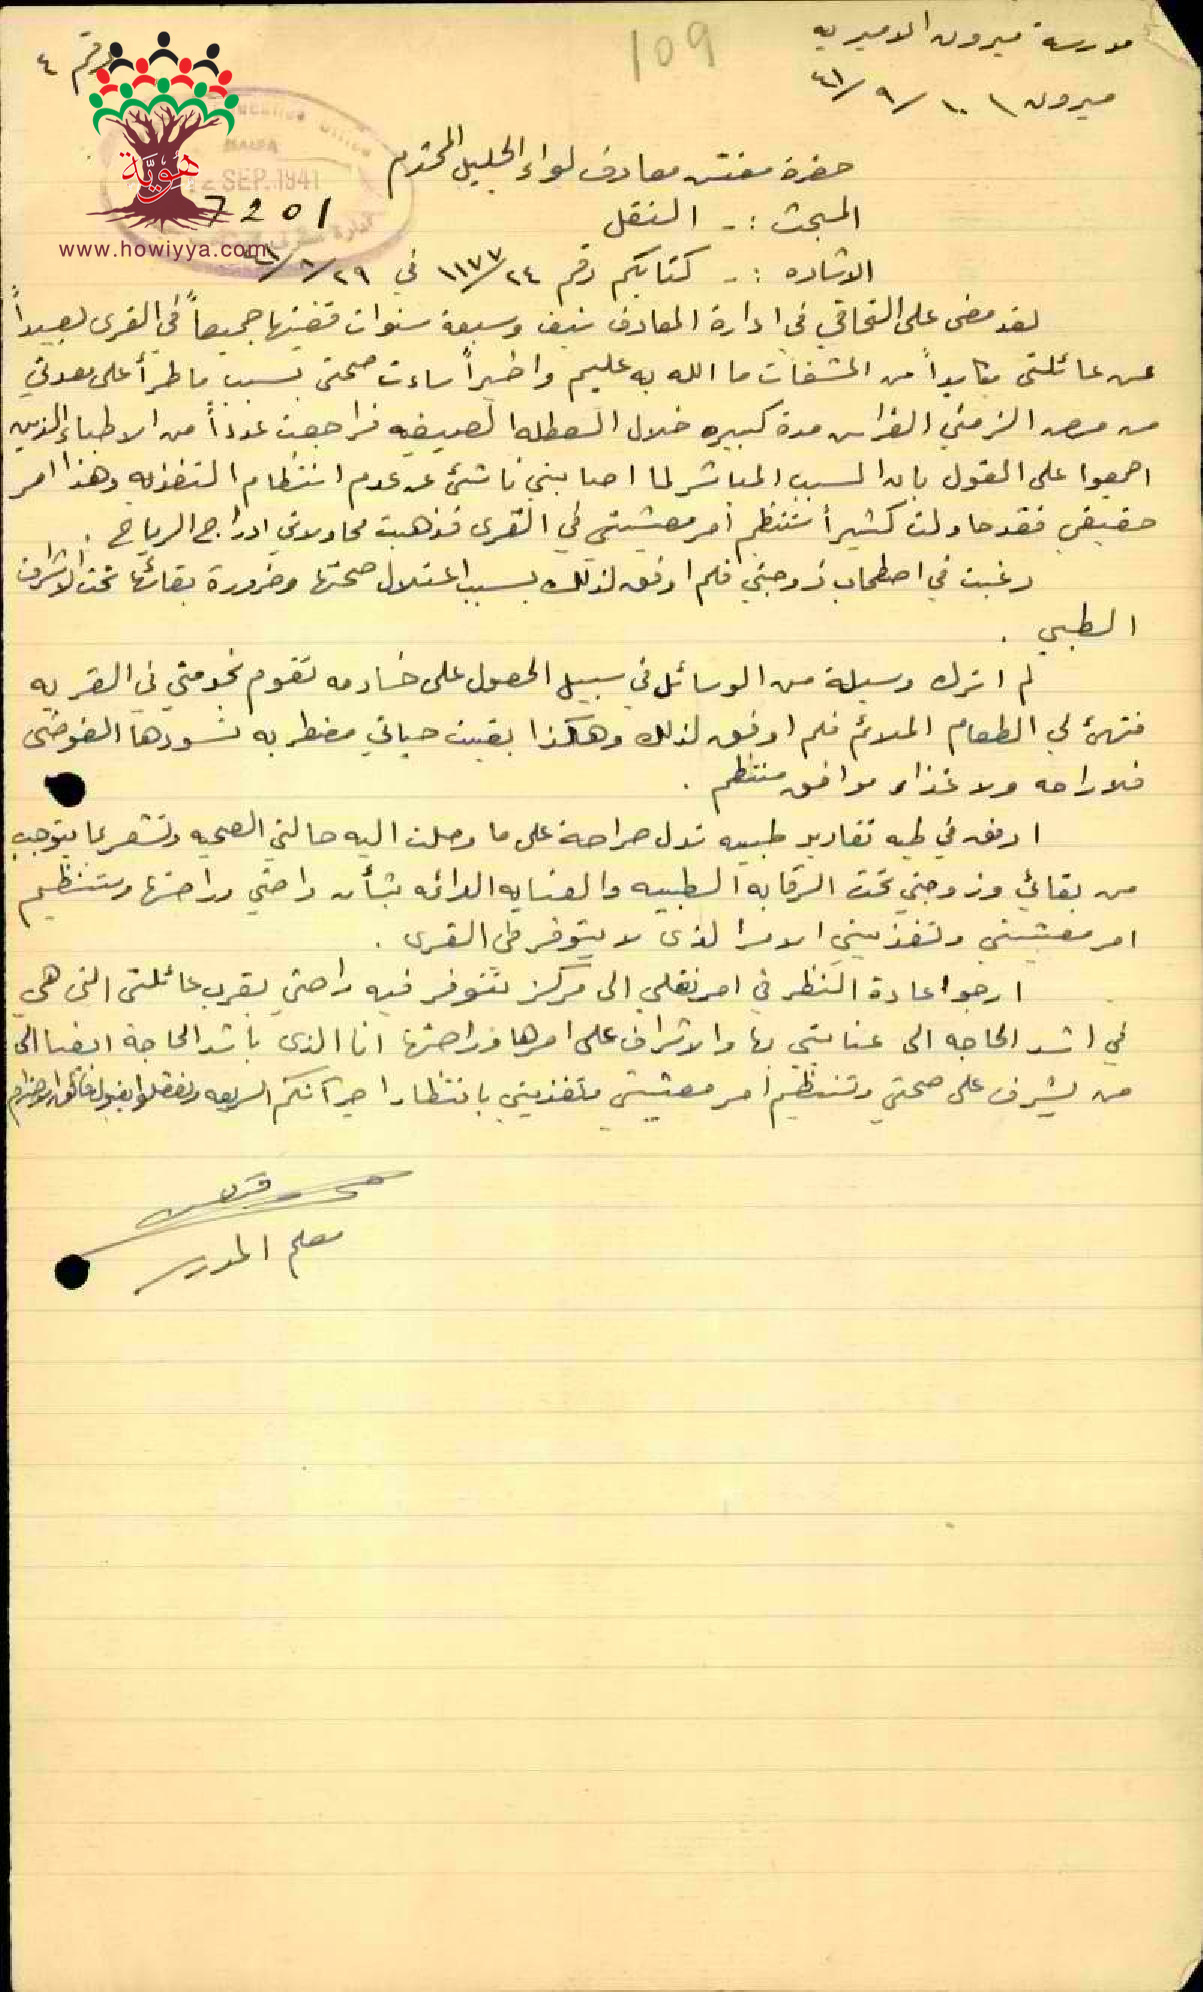 مدرسة ميرون الاميريه
رقم ٤
109
ميرون ١٠/٩/٤١
حضرة مفتش معارف لواء الجليل المحترم
HAIFA
2 SEP. 1941
هويّة
7201
www.howiyya.com
المبحث :- النقل
الاشاره :- كتابكم رقم ١١٧٧/٢٤ في ٢٩/٨/٤١
لقد مضى على التحاقي في ادارة المعارف نيف وسبعة سنوات قضيتها جميعاً في القرى بعيداً
عن عائلتي مكابداً من المشقات ما الله به عليم واخيراً ساءت صحتي بسبب ما طرأ على معدتي
من مرض الزمني الفراش مدة كبيره خلال العطله الصيفيه فراجعت عدداً من الاطباء الذين
اجمعوا على القول بان السبب المباشر لما اصابني ناشئ عن عدم انتظام التغذيه وهذا امر
حقيقي فقد حاولت كثيراً تنظيم امر معيشتي في القرى فذهبت محاولاتي ادراج الرياح .
رغبت في اصطحاب زوجتي فلم اوفق لذلك بسبب اعتلال صحتها وضرورة بقائها تحت الاشراف
الطبي .
لم اترك وسيلة من الوسائل في سبيل الحصول على خادمه تقوم بخدمتي في القريه
فتهئ لي الطعام الملائم فلم اوفق لذلك وهكذا بقيت حياتي مضطربه تسودها الفوضى
فلا راحه ولا غذاء موافق منتظم .
ارفق في طيه تقارير طبيه تدل صراحة على ما وصلت اليه حالتي الصحيه وتشعر بما يتوجب
من بقائي وزوجتي تحت الرقابه الطبيه والعنايه الدائمه بشأن راحتي وراحتها وتنظيم
امر معيشتي وتغذيتي الامر الذي لا يتوفر في القرى .
ارجو اعادة النظر في امر نقلي الى مركز تتوفر فيه راحتي بقرب عائلتي التي هي
في اشد الحاجه الى عنايتي بها والاشراف على امرها وراحتها انا الذي باشد الحاجة ايضا الى
من يشرف على صحتي وتنظيم امر معيشتي وتغذيتي بانتظار اجراآتكم السريعه وتفضلوا بقبول فائق الاحترام
معلم المدرسه